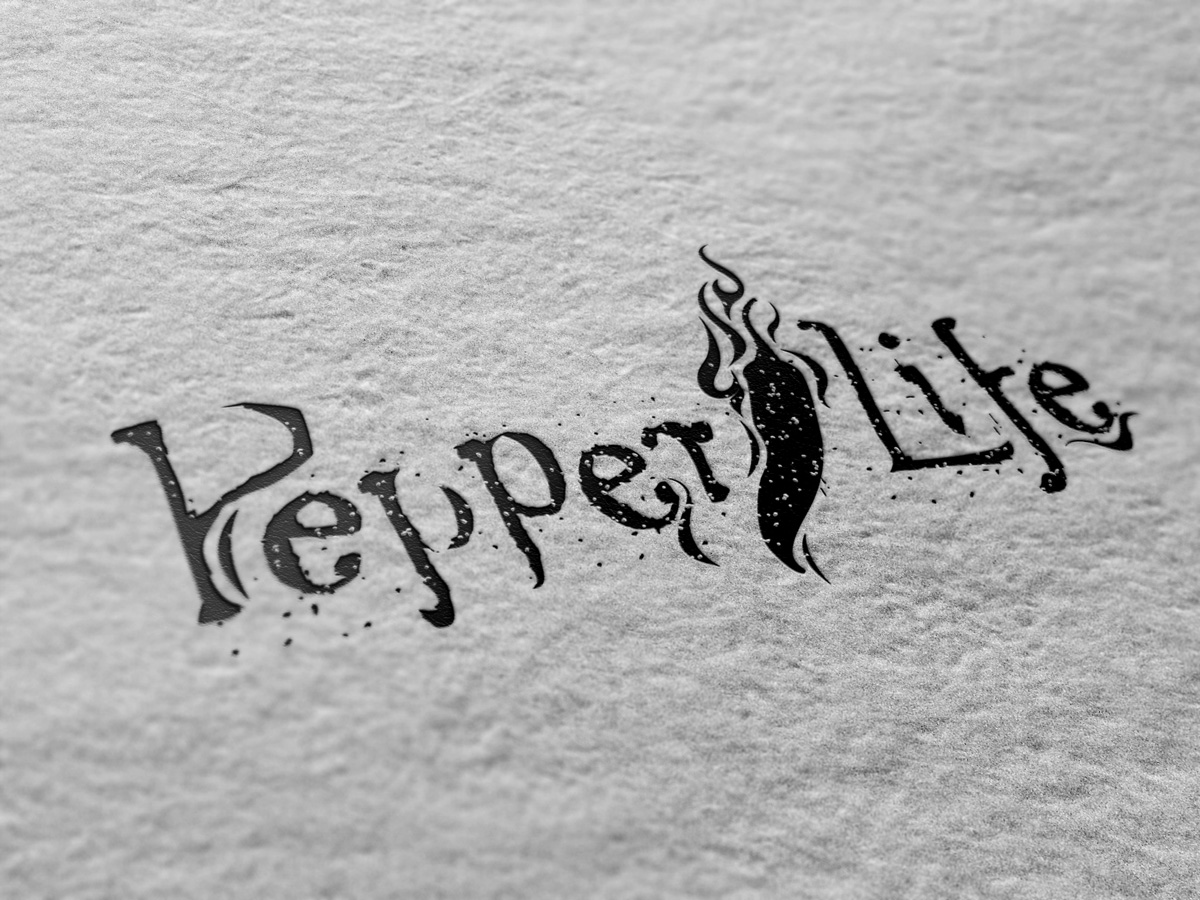 Pepper Life